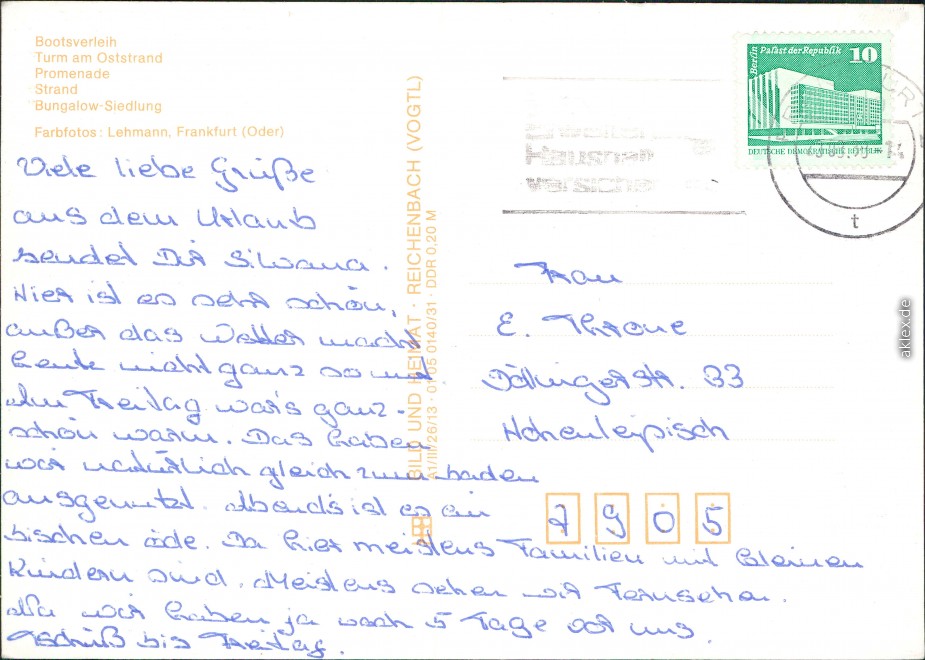 Bootsverleih
Turm am Oststrand
Promenade
Strand
Bungalow-Siedlung
Farbfotos: Lehmann, Frankfurt (Oder)
Viele liebe Grüße
aus dem Urlaub
sendet Dir Silvana.
Hier ist es sehr schön,
außer das Wetter macht
heute nicht ganz so mit.
Am Freitag war's ganz-
schön warm. Das haben
wir natürlich gleich zum baden
ausgenutzt. Abends ist es ein
bischen öde. Da hier meistens Familien mit kleinen
Kindern sind. Meistens sehen wir Fernsehen.
Na wir haben ja noch 5 Tage vor uns.
Tschüß bis Freitag.
BILD UND HEIMAT · REICHENBACH (VOGTL)
A1/III/26/13 · 01 05 0140/31 · DDR 0,20 M
Berlin Palast der Republik 10
DEUTSCHE DEMOKRATISCHE REPUBLIK
Haushalt
versicher
t
Frau
E. Throne
Döllingerstr. 33
Hohenleipisch
7905
aklex.de